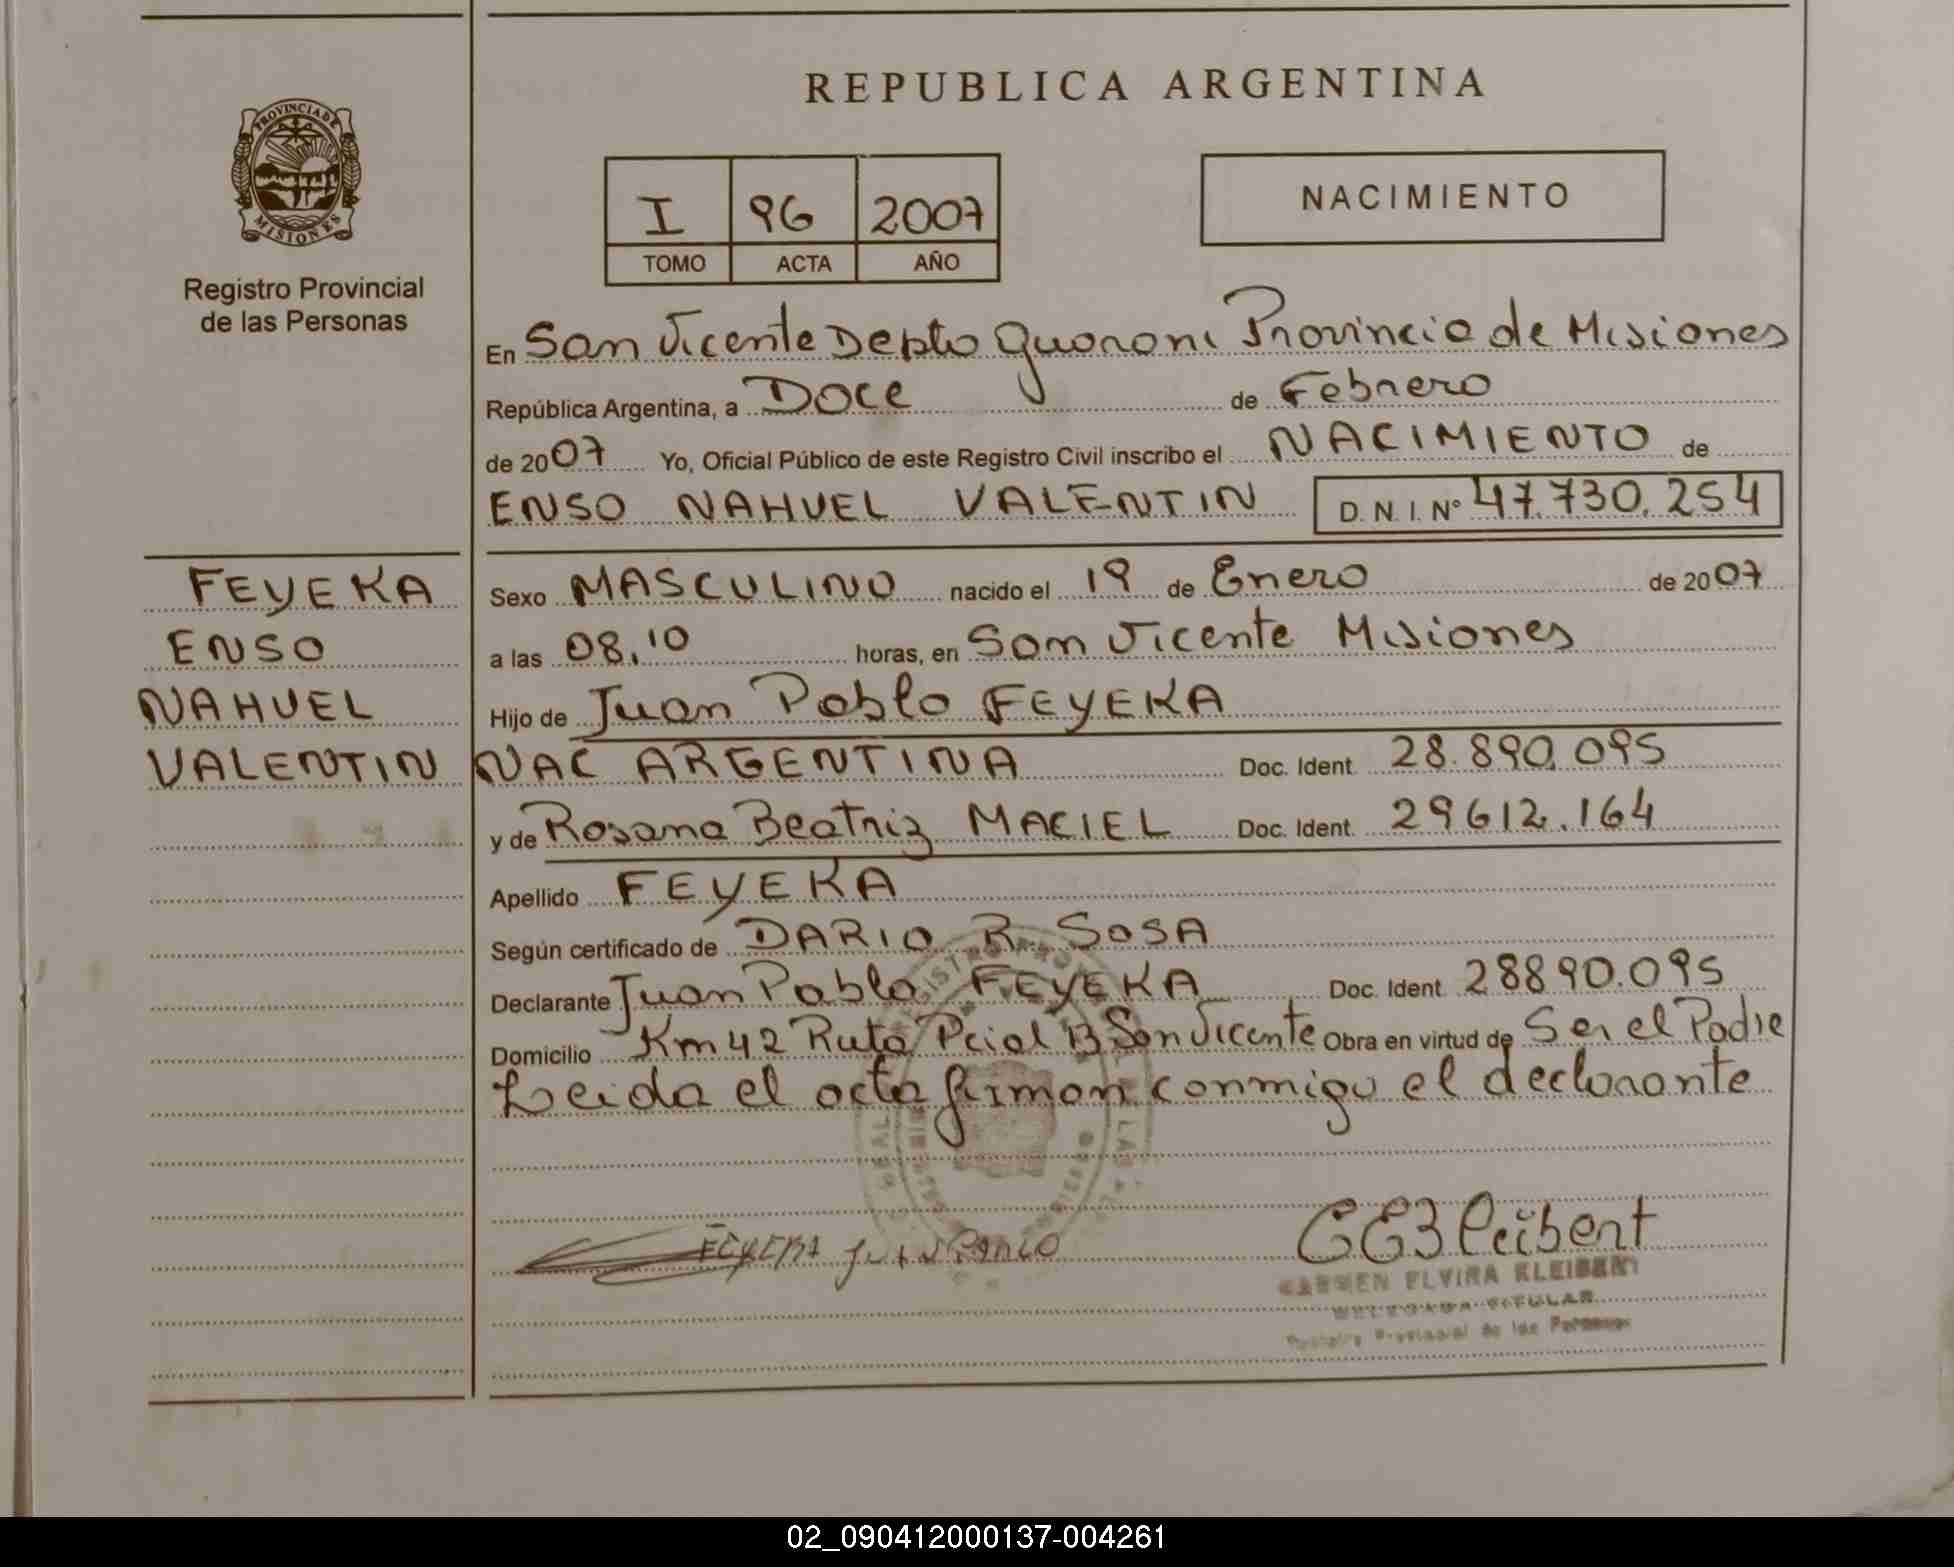 REPUBLICA ARGENTINA
PROVINCIA DE
MISIONES
Registro Provincial
de las Personas
I 96 2007
TOMO ACTA AÑO
NACIMIENTO
En San Vicente Depto Guarani Provincia de Misiones
República Argentina, a Doce de Febrero
de 2007 Yo, Oficial Público de este Registro Civil inscribo el NACIMIENTO de
ENSO NAHUEL VALENTIN D.N.I. Nº 47.730.254
FEYEKA
ENSO
NAHUEL
VALENTIN
Sexo MASCULINO nacido el 19 de Enero de 2007
a las 08,10 horas, en San Vicente Misiones
Hijo de Juan Pablo FEYEKA
NAC ARGENTINA Doc. Ident. 28.890.095
y de Rosana Beatriz MACIEL Doc. Ident. 29612.164
Apellido FEYEKA
Según certificado de DARIO R. SOSA
Declarante Juan Pablo FEYEKA Doc. Ident 28890.095
Domicilio Km 42 Ruta Pcial 13 San Vicente Obra en virtud de Ser el Padre
Leida el acta firman conmigo el declarante
FEYEKA Juan Pablo
CE3 Kleibert
CARMEN ELVIRA KLEIBERT
DELEGADA TITULAR
Registro Provincial de las Personas
02_090412000137-004261